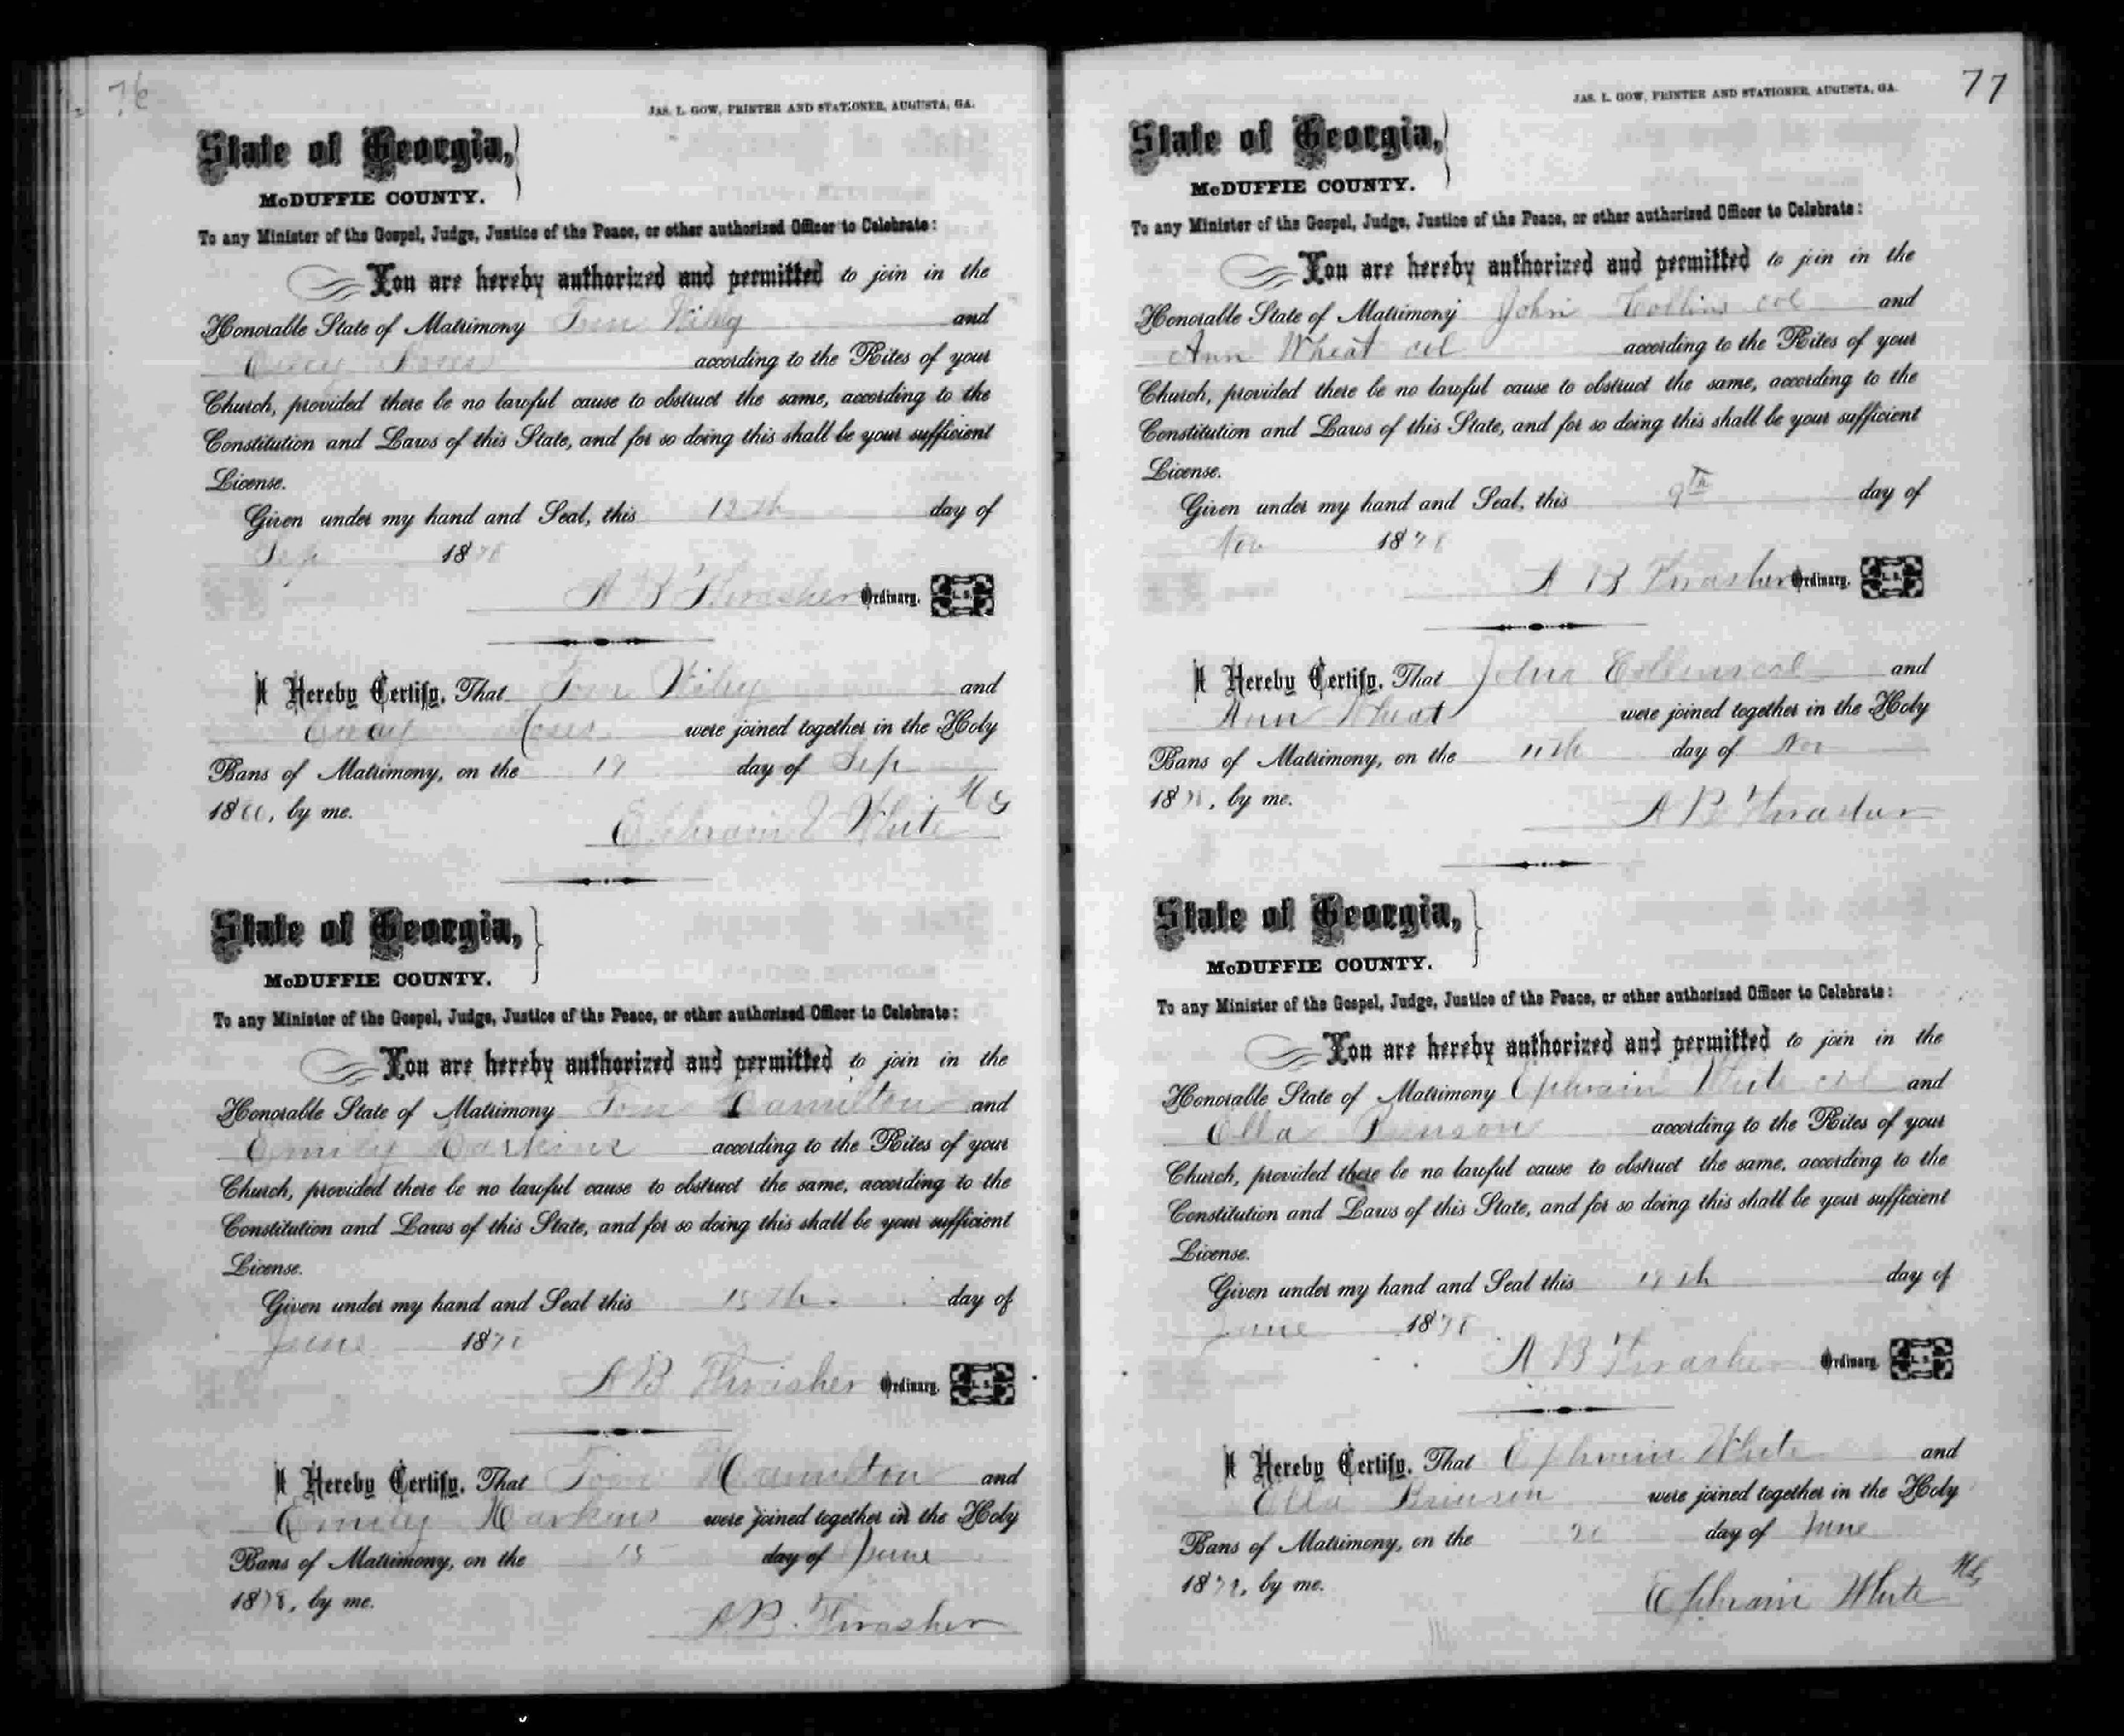 76
JAS. L. GOW, PRINTER AND STATIONER, AUGUSTA, GA.
State of Georgia,
McDUFFIE COUNTY.
To any Minister of the Gospel, Judge, Justice of the Peace, or other authorized Officer to Celebrate:
You are hereby authorized and permitted to join in the
Honorable State of Matrimony Tom Wiley and
according to the Rites of your
Church, provided there be no lawful cause to obstruct the same, according to the
Constitution and Laws of this State, and for so doing this shall be your sufficient
License.
Given under my hand and Seal, this day of
Sep 1878
A B Thrasher Ordinary. L. S.
I Hereby Certify, That Tom Wiley and
were joined together in the Holy
Bans of Matrimony, on the day of Sep
18 , by me.
Ephraim White MG
State of Georgia,
McDUFFIE COUNTY.
To any Minister of the Gospel, Judge, Justice of the Peace, or other authorized Officer to Celebrate:
You are hereby authorized and permitted to join in the
Honorable State of Matrimony Tom Hamilton and
Emily Harkins according to the Rites of your
Church, provided there be no lawful cause to obstruct the same, according to the
Constitution and Laws of this State, and for so doing this shall be your sufficient
License.
Given under my hand and Seal this 15th. day of
June 1878
A B Thrasher Ordinary. L. S.
I Hereby Certify, That Tom Hamilton and
Emily Harkins were joined together in the Holy
Bans of Matrimony, on the 15 day of June
1878, by me.
A B. Thrasher
77
JAS. L. GOW, PRINTER AND STATIONER, AUGUSTA, GA.
State of Georgia,
McDUFFIE COUNTY.
To any Minister of the Gospel, Judge, Justice of the Peace, or other authorized Officer to Celebrate:
You are hereby authorized and permitted to join in the
Honorable State of Matrimony John Collins col and
Ann Wheat col according to the Rites of your
Church, provided there be no lawful cause to obstruct the same, according to the
Constitution and Laws of this State, and for so doing this shall be your sufficient
License.
Given under my hand and Seal, this 9th day of
Nov 1878
A B Thrasher Ordinary. L. S.
I Hereby Certify, That John Collins col and
Ann Wheat were joined together in the Holy
Bans of Matrimony, on the 11th day of Nov
1878, by me.
A B Thrasher
State of Georgia,
McDUFFIE COUNTY.
To any Minister of the Gospel, Judge, Justice of the Peace, or other authorized Officer to Celebrate:
You are hereby authorized and permitted to join in the
Honorable State of Matrimony Ephraim White col and
Ella Brinson according to the Rites of your
Church, provided there be no lawful cause to obstruct the same, according to the
Constitution and Laws of this State, and for so doing this shall be your sufficient
License.
Given under my hand and Seal this day of
June 1878
A B Thrasher Ordinary. L. S.
I Hereby Certify, That Ephraim White and
Ella Brinson were joined together in the Holy
Bans of Matrimony, on the 20 day of June
1878, by me.
Ephraim White MG